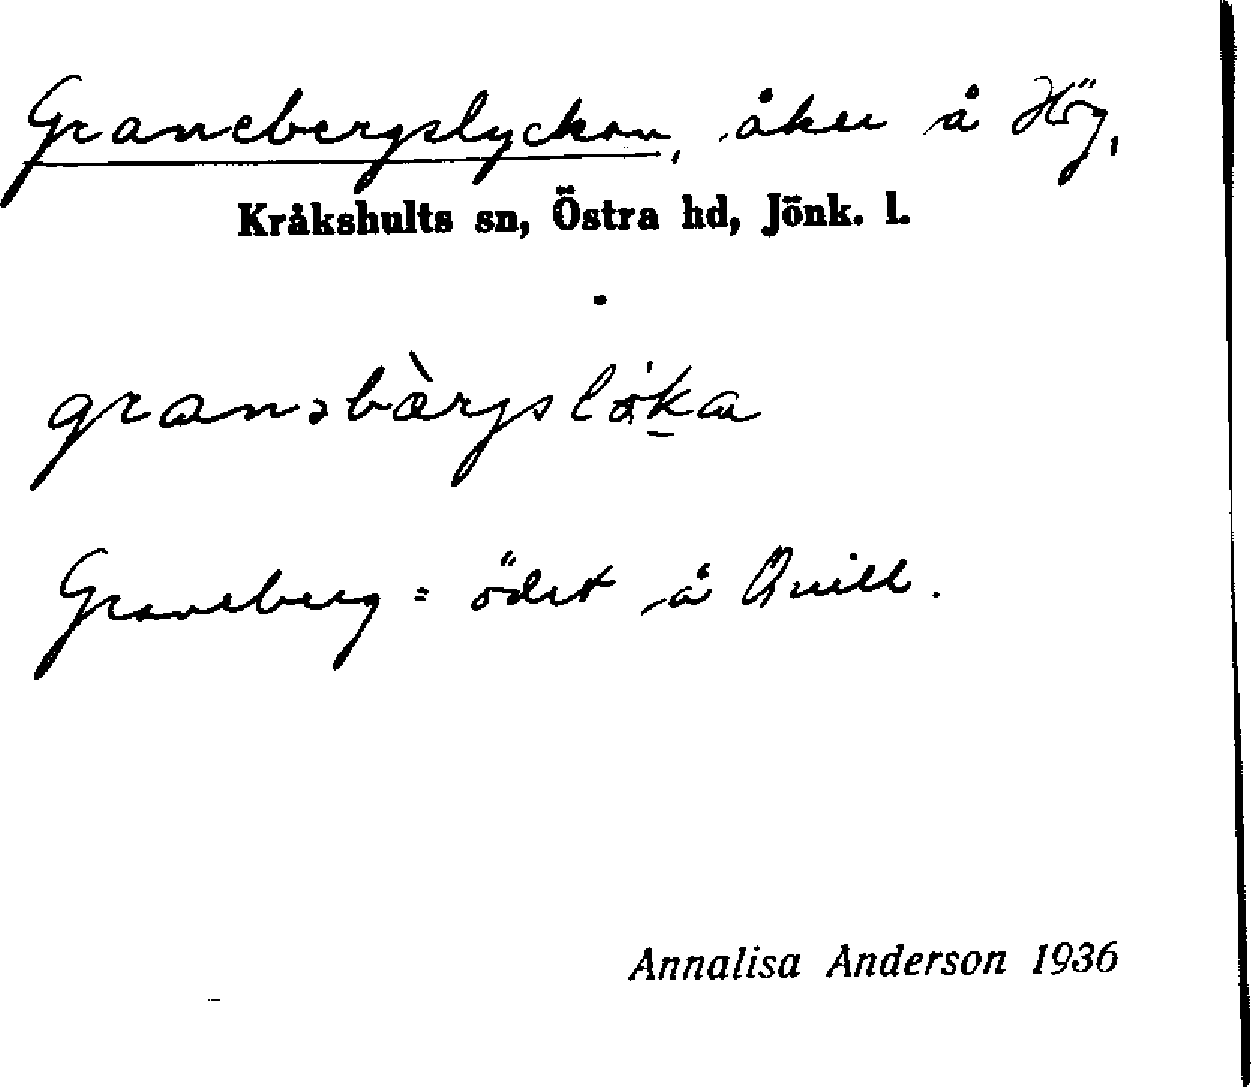 Granebergslyckan, åker å Hög,
Kråkshults sn, Östra hd, Jönk. l.
granəbàrgsløka
Graneberg = ödet å Quill.
Annalisa Anderson 1936